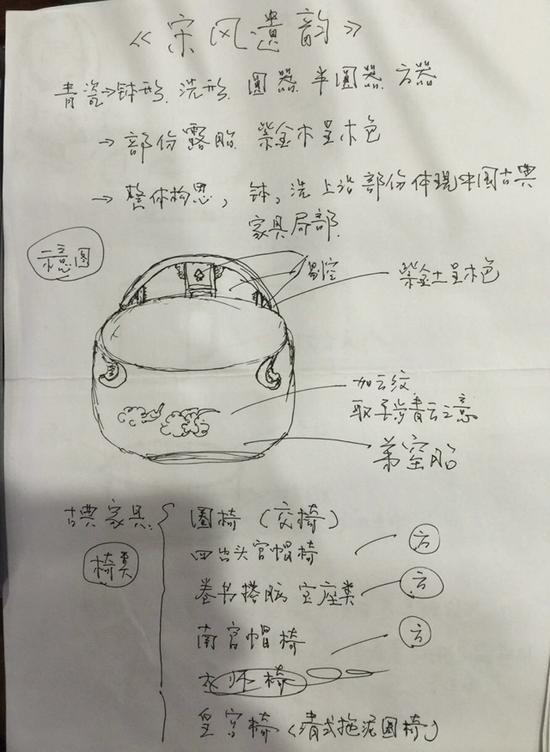 《宋风遗韵》
青瓷→钵形.洗形.圆器.半圆器.方器
→部份露胎.紫金木呈木色
→整体构思,钵,洗上沿部份体现中国古典
家具局部.
示意图
剔空
紫金土呈木色
加云纹
取平步青云之意
弟窑胎
古典家具
椅类
圈椅(交椅)
四出头官帽椅
方
卷书搭脑宝座类
方
南官帽椅
方
怀椅
皇宫椅(清式拖泥圈椅)